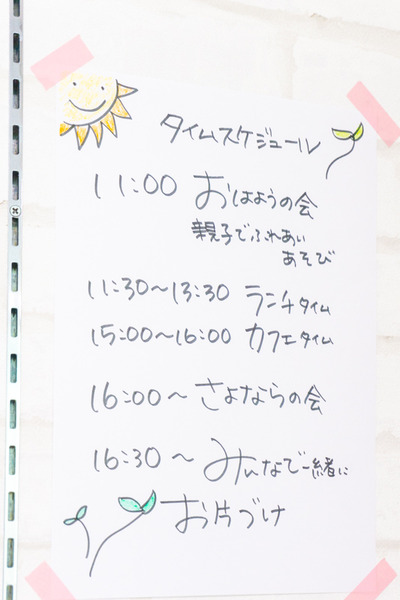 タイムスケジュール
11:00 おはようの会
親子でふれあい
あそび
11:30〜13:30 ランチタイム
15:00〜16:00 カフェタイム
16:00〜 さよならの会
16:30〜 みんなで一緒に
お片づけ